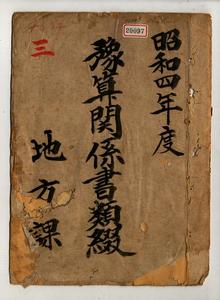 昭和四年度
豫算関係書類綴
地方課
三
20097